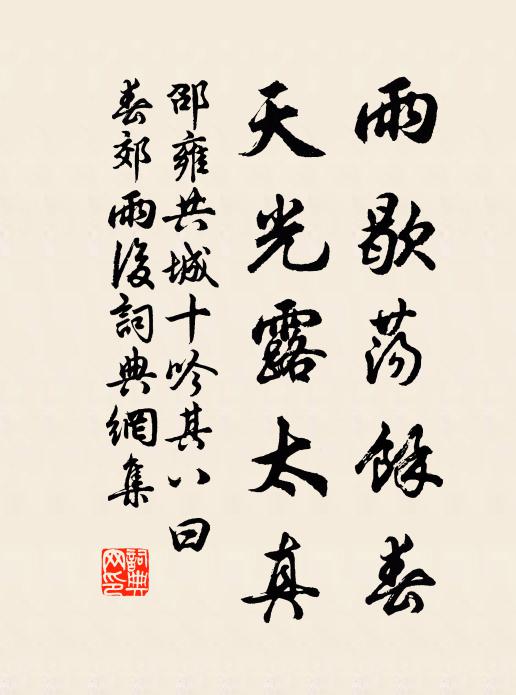 雨歇蕩餘春
天光露太真
邵雍共城十吟其八曰
春郊雨後詞典網集
詞典网印